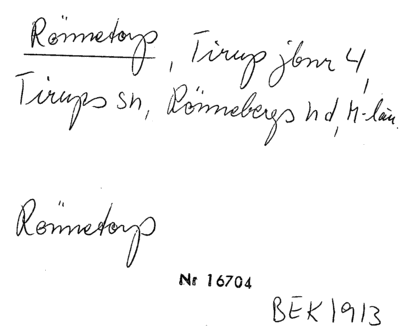 Rönnetorp, Tirup jbnr 4,
Tirups sn, Rönnebergs hd, M-län.
Rönnetorp
Nr 16704
BEK 1913